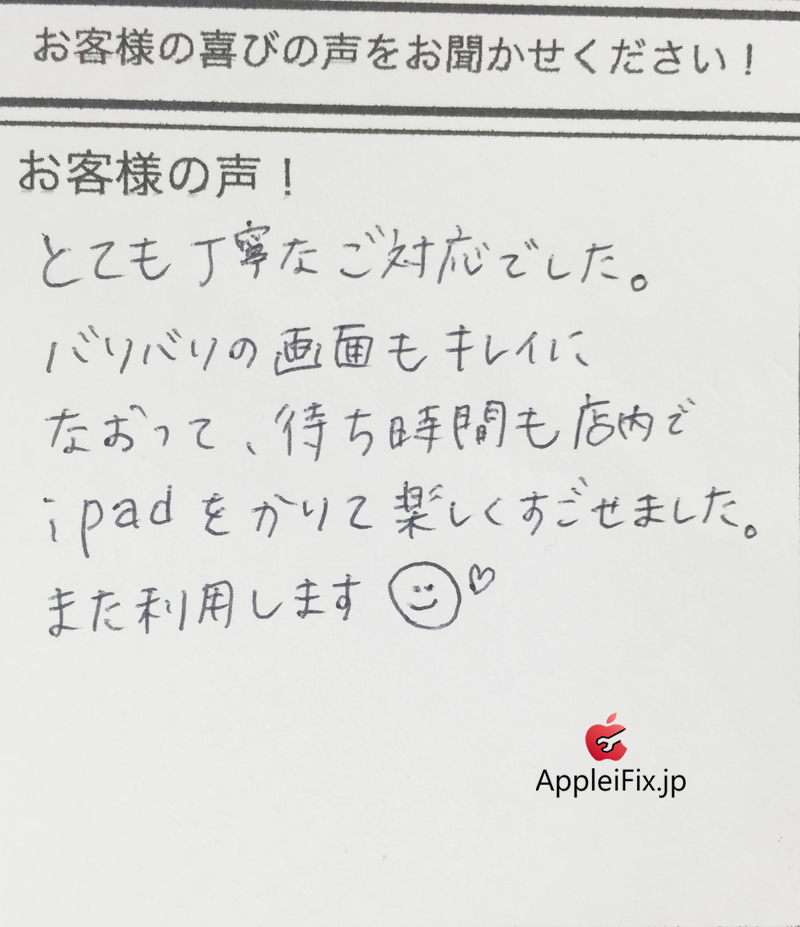 お客様の喜びの声をお聞かせください！
お客様の声！
とても丁寧なご対応でした。
バリバリの画面もキレイに
なおって、待ち時間も店内で
ipadをかりて楽しくすごせました。
また利用します
AppleiFix.jp